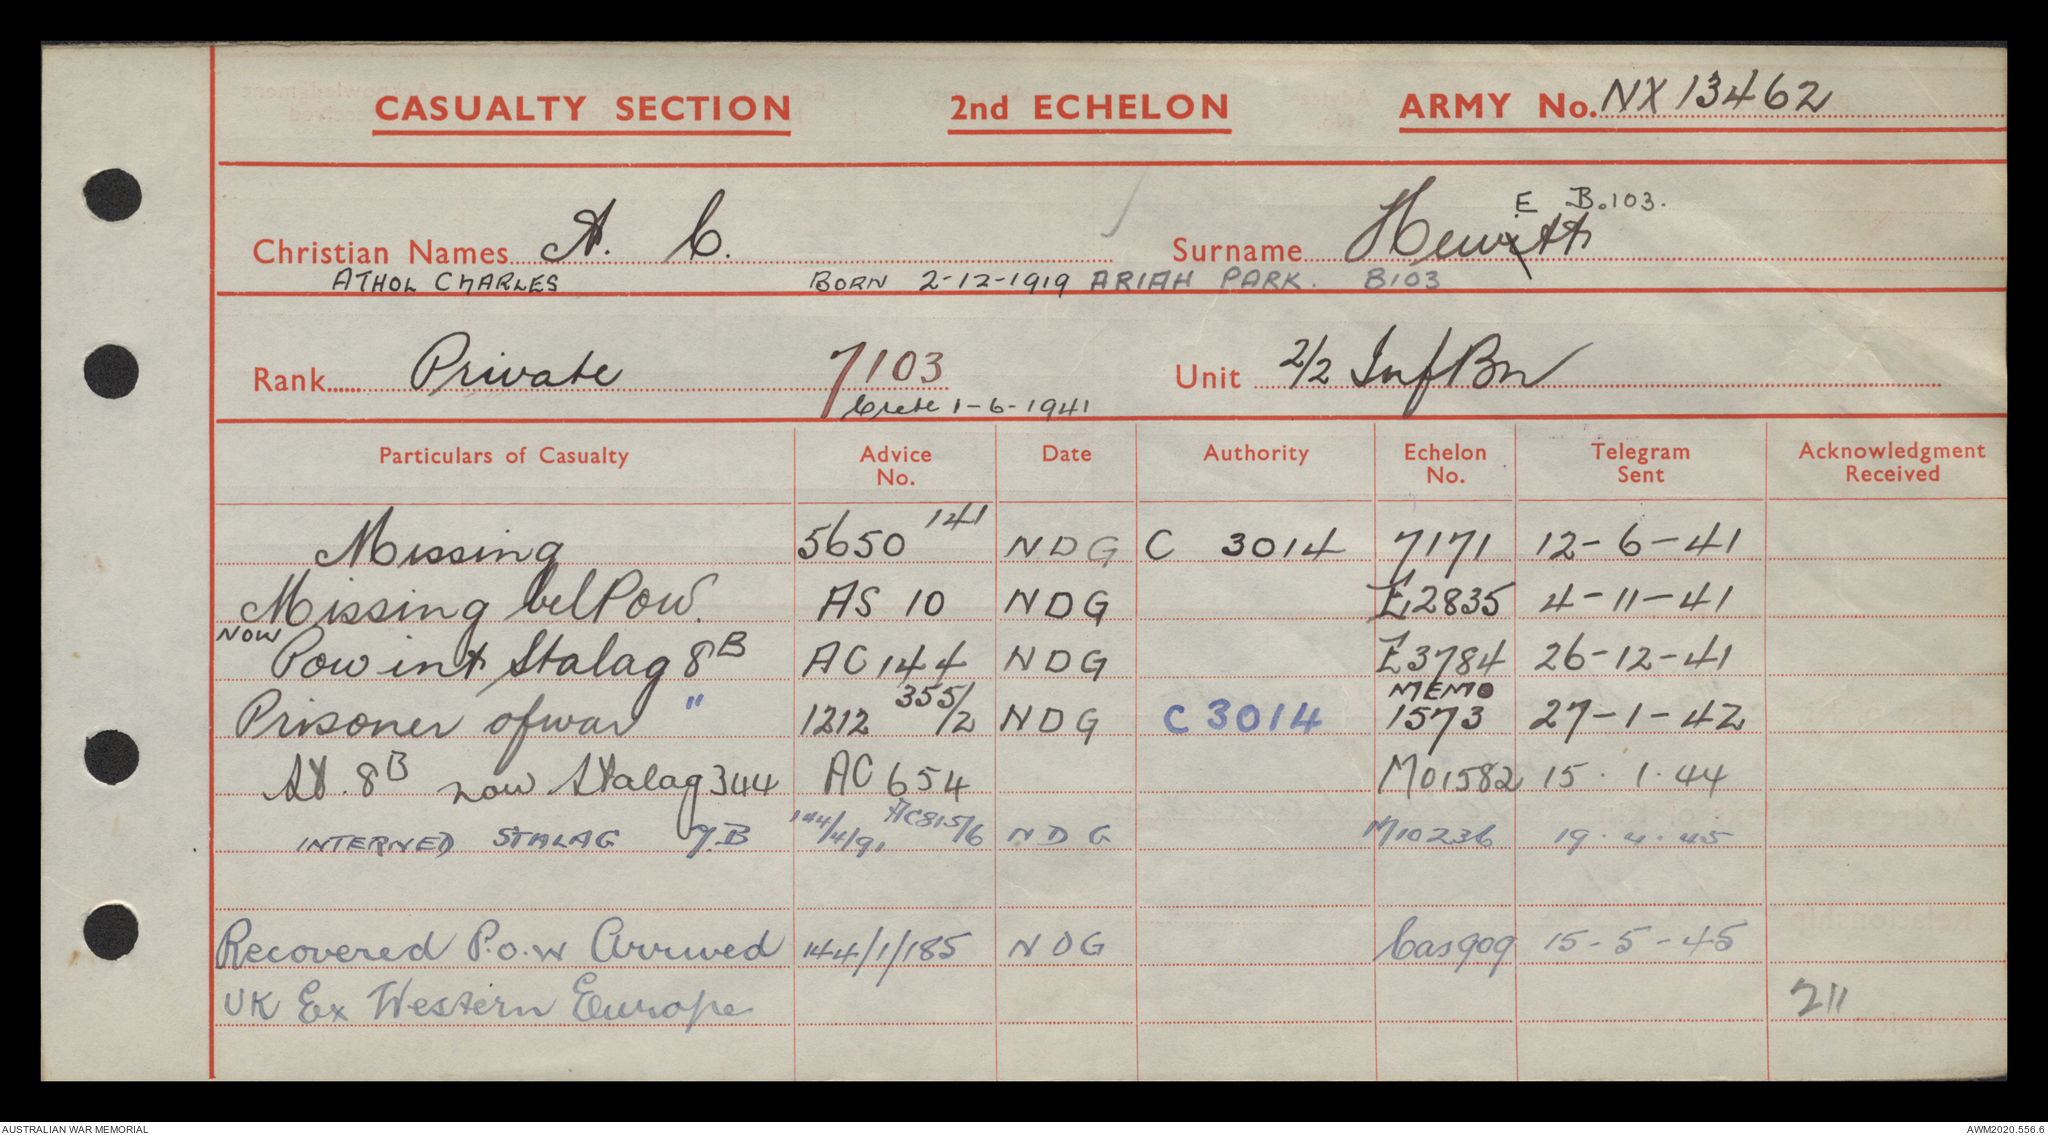 CASUALTY SECTION 2nd ECHELON ARMY No. NX 13462
E B.103.
Christian Names A. C. Surname Hewitt
ATHOL CHARLES BORN 2-12-1919 ARIAH PARK. B103
Rank Private 7103 Unit 2/2 Inf Bn
Crete 1-6-1941
Particulars of Casualty Advice No. Date Authority Echelon No. Telegram Sent Acknowledgment Received
Missing 5650 141 NDG C 3014 7171 12-6-41
Missing bel POW. AS 10 NDG E2835 4-11-41
NOW
Pow int Stalag 8B AC 144 NDG E3784 26-12-41
Prisoner of war " 1212 355/2 NDG C3014 MEMO 1573 27-1-42
St. 8B now Stalag 344 AC 654 M01582 15. 1. 44
INTERNED STALAG 7.B 144/4/91 AC815/6 NDG M10236 19. 4. 45
Recovered P.o.w Arrived 144/1/185 NDG Cas909 15-5-45
UK Ex Western Europe 211
AUSTRALIAN WAR MEMORIAL AWM2020.556.6